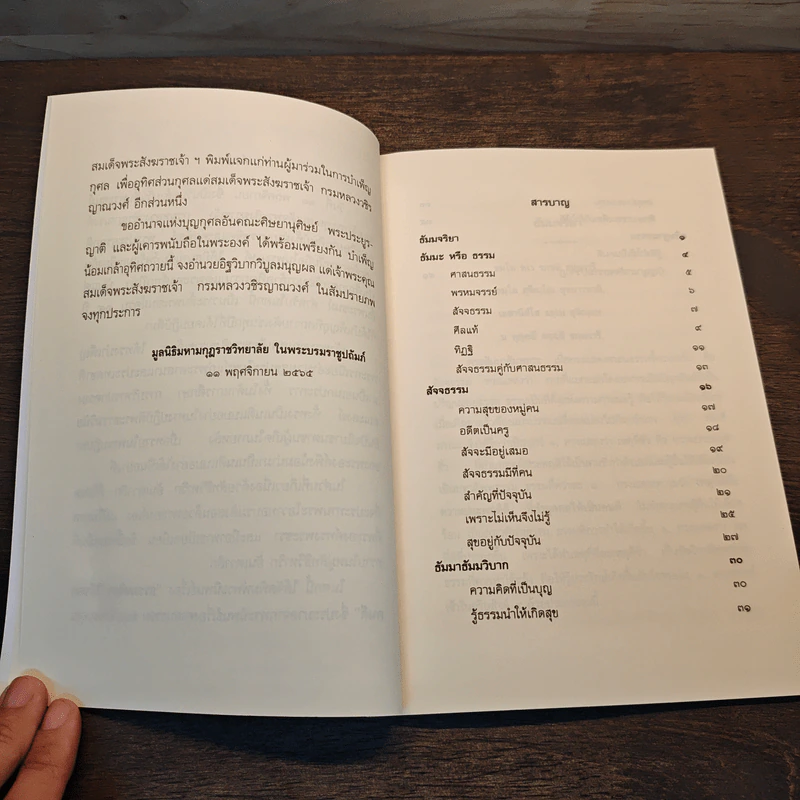 สมเด็จพระสังฆราชเจ้า ฯ พิมพ์แจกแก่ท่านผู้มาร่วมในการบำเพ็ญ
กุศล เพื่ออุทิศส่วนกุศลแด่สมเด็จพระสังฆราชเจ้า กรมหลวงวชิร
ญาณวงศ์ อีกส่วนหนึ่ง
ขออำนาจแห่งบุญกุศลอันคณะศิษยานุศิษย์ พระประยูร-
ญาติ และผู้เคารพนับถือในพระองค์ ได้พร้อมเพรียงกัน บำเพ็ญ
น้อมเกล้าอุทิศถวายนี้ จงอำนวยอิฐวิบากวิบูลมนุญผล แด่เจ้าพระคุณ
สมเด็จพระสังฆราชเจ้า กรมหลวงวชิรญาณวงศ์ ในสัมปรายภพ
จงทุกประการ
มูลนิธิมหามกุฏราชวิทยาลัย ในพระบรมราชูปถัมภ์
๑๑ พฤศจิกายน ๒๕๖๕
สารบาญ
ธัมมจริยา ๑
ธัมมะ หรือ ธรรม ๔
ศาสนธรรม ๕
พรหมจรรย์ ๖
สัจจธรรม ๗
ศีลแท้ ๙
ทิฏฐิ ๑๑
สัจจธรรมคู่กับศาสนธรรม ๑๓
สัจจธรรม ๑๖
ความสุขของหมู่คน ๑๗
อดีตเป็นครู ๑๘
สัจจะมีอยู่เสมอ ๑๙
สัจจธรรมมีที่คน ๒๐
สำคัญที่ปัจจุบัน ๒๑
เพราะไม่เห็นจึงไม่รู้ ๒๕
สุขอยู่กับปัจจุบัน ๒๗
ธัมมาธัมมวิบาก ๓๐
ความคิดที่เป็นบุญ ๓๐
รู้ธรรมนำให้เกิดสุข ๓๑